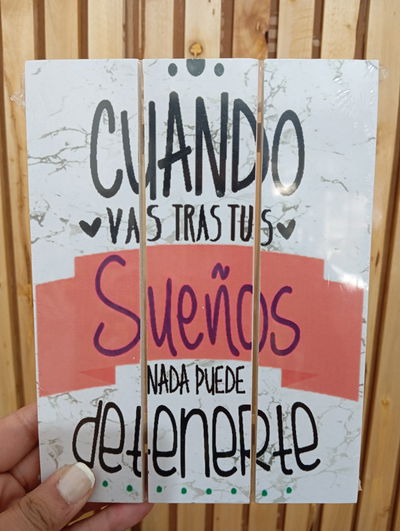 CUANDO
VAS TRAS TUS
Sueños
NADA PUEDE
deteneRte